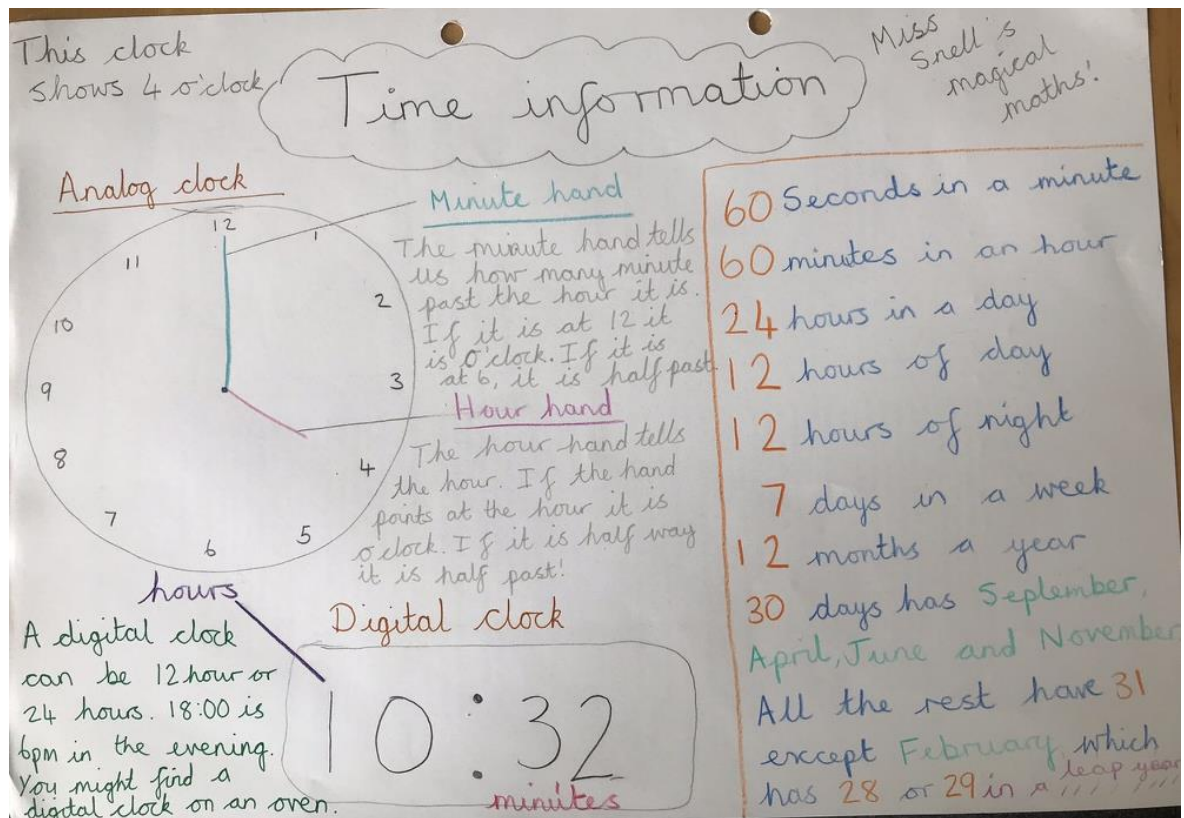 This clock
shows 4 o'clock
Time information
Miss
Snell's
magical
maths!
Analog clock
12
1
2
3
4
5
6
7
8
9
10
11
Minute hand
The minute hand tells
us how many minute
past the hour it is.
If it is at 12 it
is o'clock. If it is
at 6, it is half past
Hour hand
The hour hand tells
the hour. If the hand
points at the hour it is
o'clock. If it is half way
it is half past!
hours
A digital clock
can be 12 hour or
24 hours. 18:00 is
6pm in the evening.
You might find a
digital clock on an oven.
Digital clock
10:32
minutes
60 Seconds in a minute
60 minutes in an hour
24 hours in a day
12 hours of day
12 hours of night
7 days in a week
12 months a year
30 days has September,
April, June and November
All the rest have 31
except February which
has 28 or 29 in a leap year